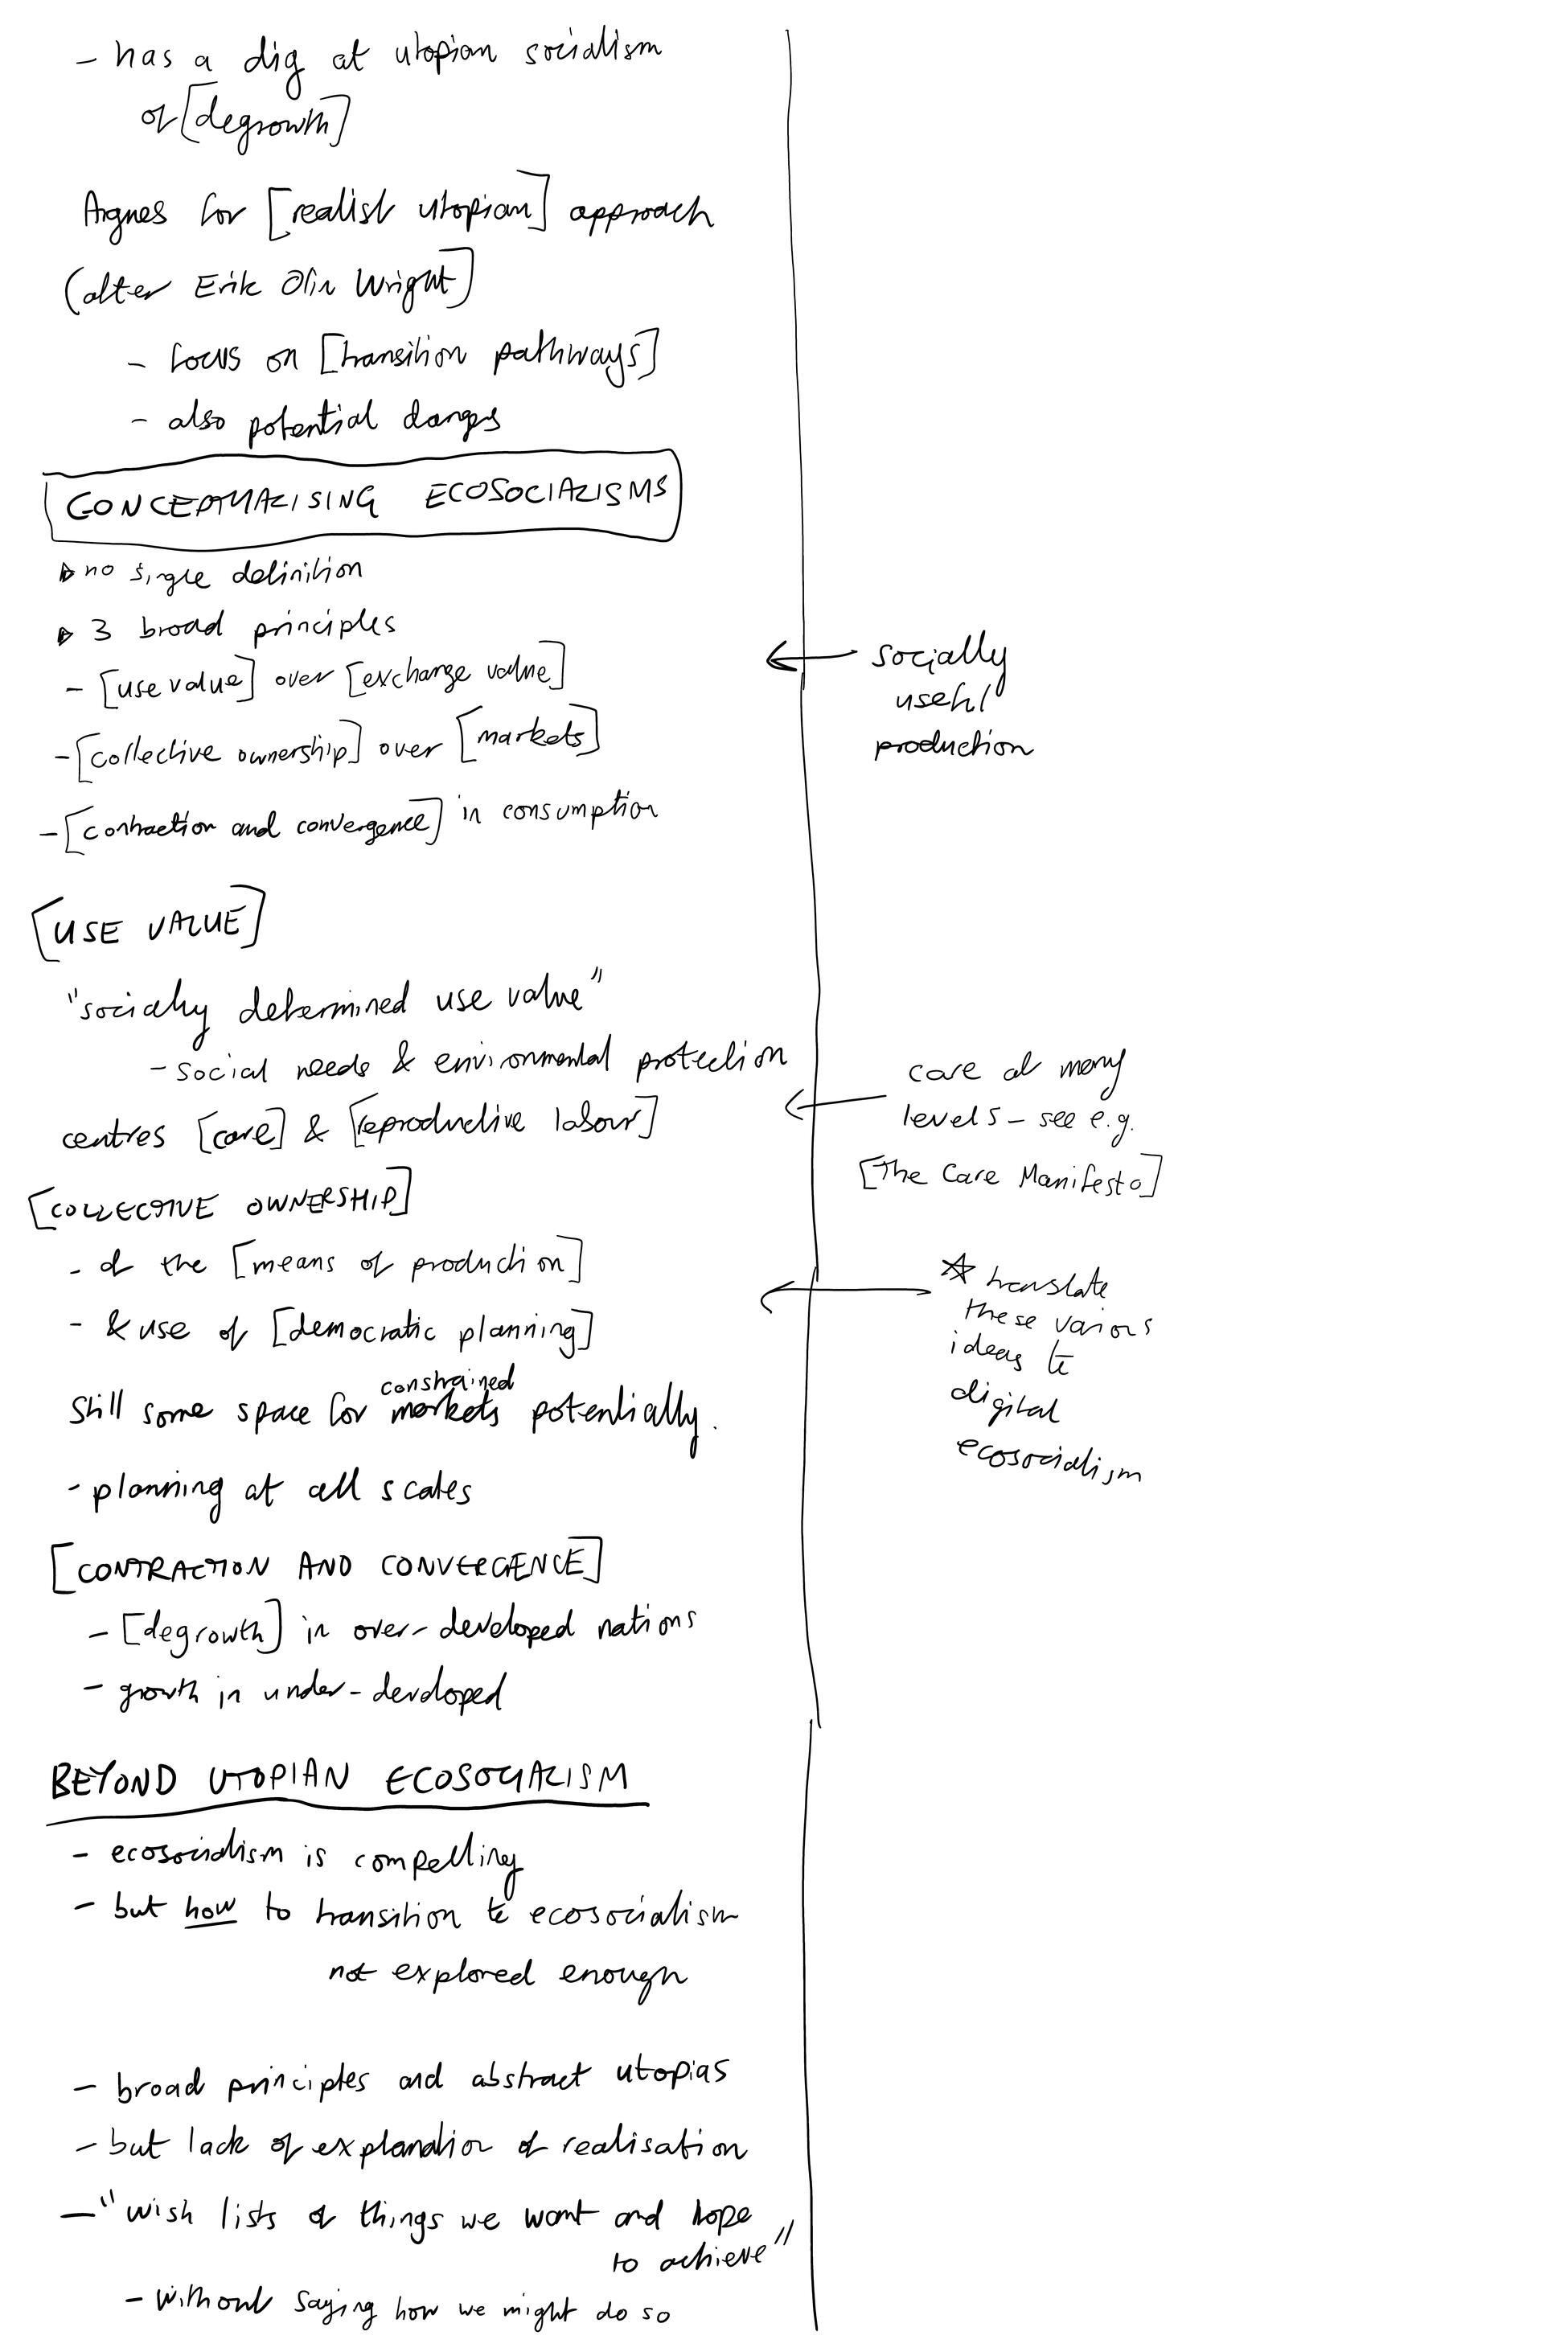 - has a dig at utopian socialism
of [degrowth]
Argues for [realist utopian] approach
(after Erik Olin Wright]
- focus on [transition pathways]
- also potential dangers
CONCEPTUALISING ECOSOCIALISMS
no single definition
3 broad principles
- [use value] over [exchange value]
- [collective ownership] over [markets]
- [contraction and convergence] in consumption
socially
useful
production
[USE VALUE]
"socially determined use value"
- social needs & environmental protection
centres [care] & [reproductive labour]
care at many
levels - see e.g.
[The Care Manifesto]
[COLLECTIVE OWNERSHIP]
- of the [means of production]
- & use of [democratic planning]
constrained
Still some space for markets potentially.
- planning at all scales
☆ translate
these various
ideas to
digital
ecosocialism
[CONTRACTION AND CONVERGENCE]
- [degrowth] in over-developed nations
- growth in under-developed
BEYOND UTOPIAN ECOSOCIALISM
- ecosocialism is compelling
- but how to transition to ecosocialism
not explored enough
- broad principles and abstract utopias
- but lack of explanation of realisation
- "wish lists of things we want and hope
to achieve"
- without saying how we might do so